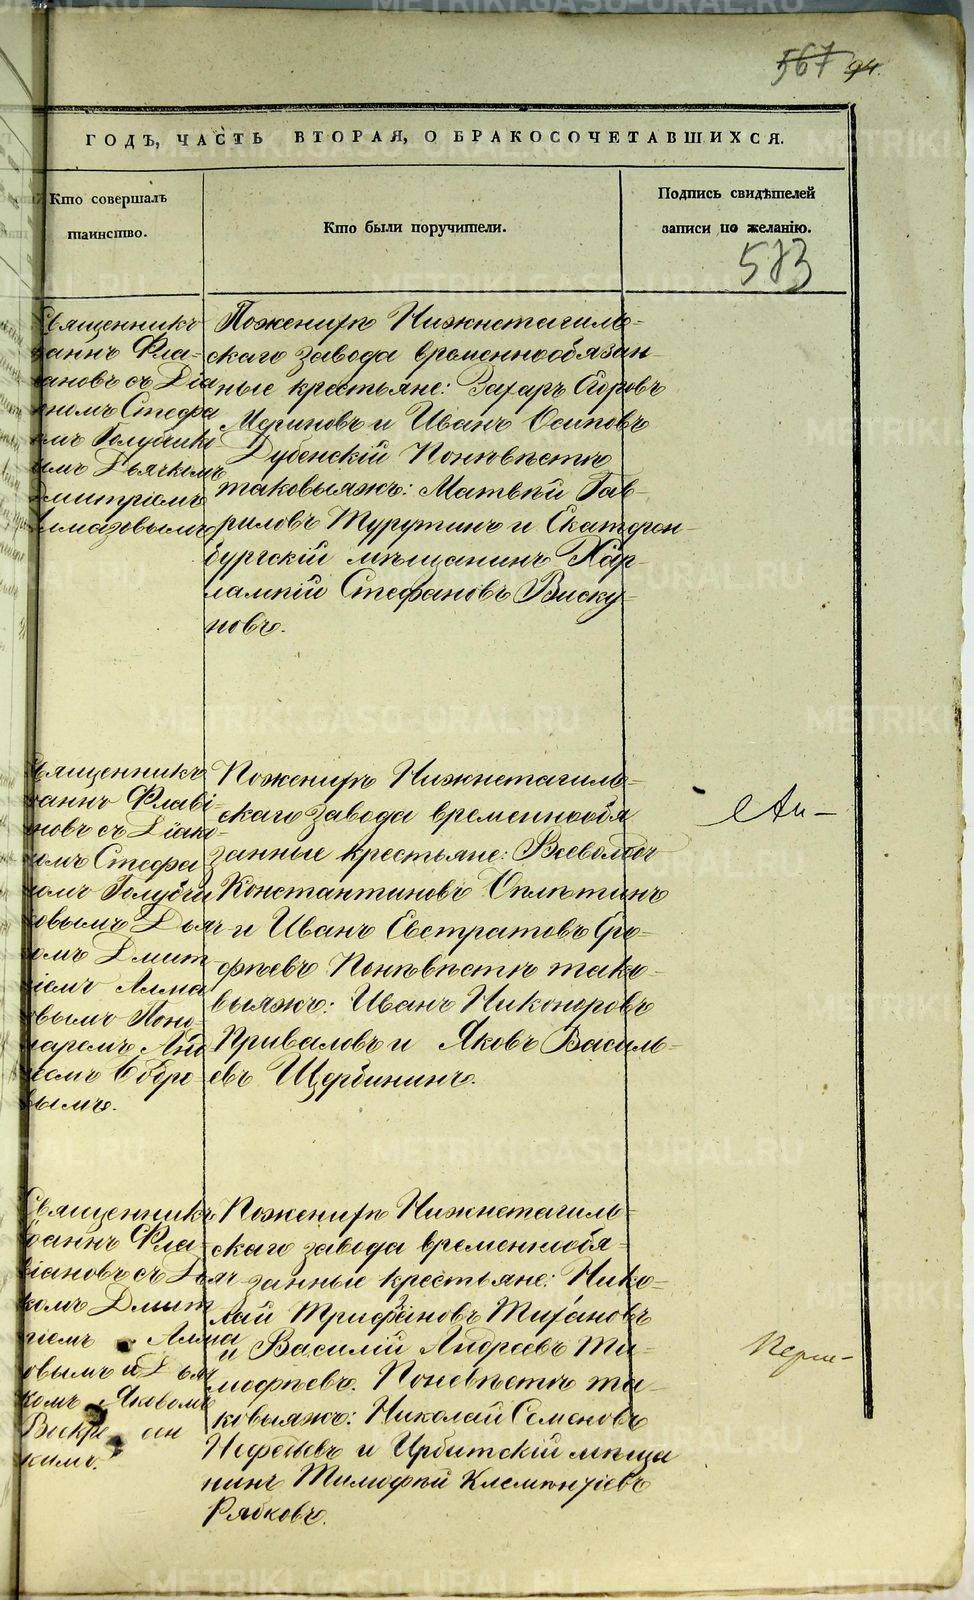 567 94.
ГОДЪ, ЧАСТЬ ВТОРАЯ, О БРАКОСОЧЕТАВШИХСЯ.
Кто совершалъ
таинство.
Кто были поручители.
Подпись свидѣтелей
записи по желанію.
573
Священникъ
Іоаннъ Фла-
віановъ съ Діа
кономъ Стефа
номъ Голубчико
вымъ Дьячкомъ
Дмитріемъ
Алмазовымъ
По женихѣ Нижнетагиль-
скаго завода временнообязан-
ные крестьяне: Захаръ Егоровъ
Мериновъ и Иванъ Осиповъ
Дубенскій По невѣстѣ
таковыяжъ: Матвѣй Гав-
риловъ Турутинъ и Екатерин-
бургскій мѣщанинъ Хар-
лампій Стефановъ Виску-
новъ.
Священникъ
Іоаннъ Флаві-
ановъ съ Діако-
номъ Стефа
номъ Голубчи
ковымъ Дьяч
комъ Дмит
ріемъ Алма
зовымъ Поно-
маремъ
Бобро-
вымъ.
По женихѣ Нижнетагиль-
скаго завода временнообя
занные крестьяне: Всеволодъ
Константиновъ Оплѣтинъ
и Иванъ Евстратовъ Еро-
фѣевъ По невѣстѣ тако-
выяжъ: Иванъ Никоноровъ
Приваловъ и Яковъ Василь-
евъ Щербининъ.
Священникъ
Іоаннъ Фла-
віановъ съ Дьяч
комъ Дмит
ріемъ Алма
зовымъ и Дьяч
комъ Яковомъ
Воскресен
скимъ.
По женихѣ Нижнетагиль-
скаго завода временнообя-
занные крестьяне: Нико-
лай Трифановъ Тихановъ
и Василій Андреевъ Ти-
мофѣевъ. По невѣстѣ та-
ковыяжъ: Николай Семеновъ
Нефедьевъ и Ирбитскій мѣща
нинъ Тимофѣй Клементіевъ
Рябковъ.